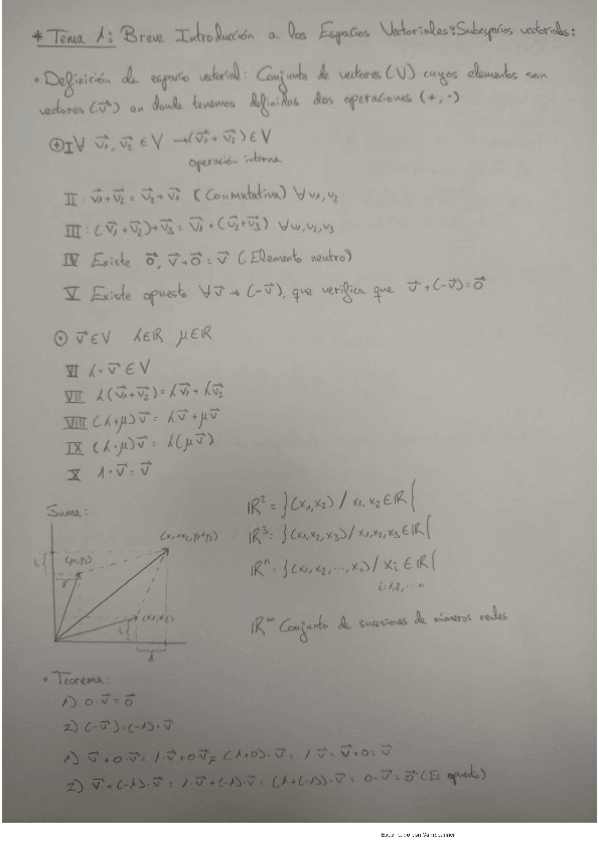 * Tema 1: Breve Introducción a los Espacios Vectoriales: Subespacios vectoriales:
• Definición de espacio vectorial: Conjunto de vectores (V) cuyos elementos son
vectores (v⃗) en donde tenemos definidas dos operaciones (+, ·)
⊕ I ∀ v⃗₁, v⃗₂ ∈ V → (v⃗₁ + v⃗₂) ∈ V
operación interna
II: v⃗₁+v⃗₂ = v⃗₂+v⃗₁ (Conmutativa) ∀ v₁, v₂
III: (v⃗₁+v⃗₂)+v⃗₃ = v⃗₁+(v⃗₂+v⃗₃) ∀ v₁, v₂, v₃
IV Existe 0⃗, v⃗+0⃗ = v⃗ (Elemento neutro)
V Existe opuesto ∀ v⃗ → (-v⃗), que verifica que v⃗+(-v⃗)=0⃗
⊙ v⃗ ∈ V λ∈ℝ μ∈ℝ
VI λ·v⃗ ∈ V
VII λ(v⃗₁+v⃗₂) = λv⃗₁+λv⃗₂
VIII (λ+μ)v⃗ = λv⃗+μv⃗
IX (λ·μ)v⃗ = λ(μv⃗)
X 1·v⃗ = v⃗
Suma:
(y₁,y₂)
(x₁,x₂)
ℝ² = }(x₁,x₂) / x₁, x₂ ∈ ℝ{
ℝ³ = }(x₁,x₂,x₃) / x₁,x₂,x₃ ∈ ℝ{
ℝⁿ = }(x₁,x₂,...,xₙ) / xᵢ ∈ ℝ{
i=1,2,...n
ℝ^∞ Conjunto de sucesiones de números reales
• Teorema:
1) 0·v⃗ = 0⃗
2) (-v⃗) = (-1)·v⃗
1) v⃗+0·v⃗ = 1·v⃗+0·v⃗ = (1+0)·v⃗ = 1·v⃗ = v⃗+0 = v⃗
2) v⃗+(-1)·v⃗ = 1·v⃗+(-1)·v⃗ = (1+(-1))·v⃗ = 0·v⃗ = 0⃗ (Es opuesto)